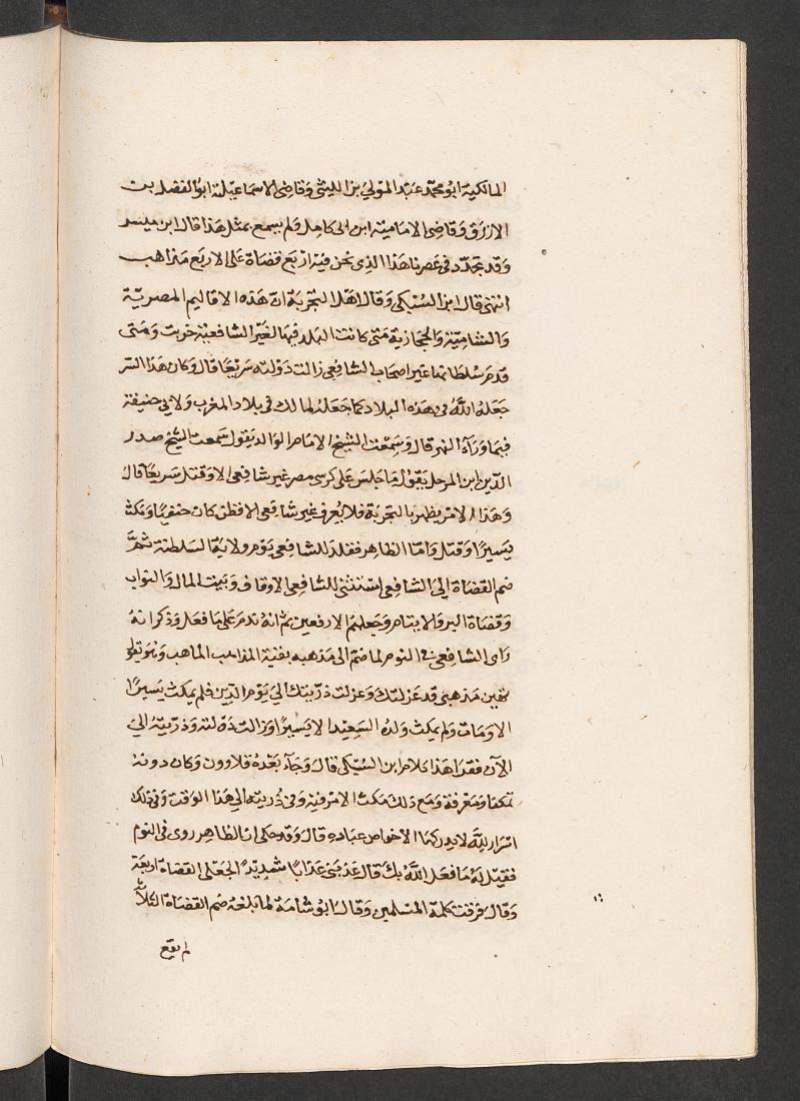 المالكية ابو محمد عبد المولي بن الليثي وقاضي الاسماعيلية ابو الفضل بن
الازرق وقاضي الامامية ابن ابي كامل ولم يسمع بمثل هذا قال ابن ميسر
وقد تجدد في عصرنا هذا الذي نحن فيه اربع قضاة على الاربع مذاهب
انتهى قال ابن السبكي وقال اهل التجربة ان هذه الاقاليم المصرية
والشامية والحجازية متى كانت البلد فيها لغير الشافعية خربت ومتى
قدم سلطانها غير اصحاب الشافعي زالت دولته سريعا قال وكان هذا السر
جعله الله في هذه البلاد كما جعله لمالك في بلاد المغرب ولابي حنيفة
فيما وراء النهر قال وسمعت الشيخ الامام الوالد يقول سمعت الشيخ صدر
الدين ابن المرحل يقول ما جلس على كرسي مصر غير شافعي الا وقتل سريعا قال
وهذا الامر يظهر بالتجربة فلا يعرف غير شافعي الا قطز كان حنفيا ومكث
يسيرا وقتل واما الظاهر فقلد للشافعي يوم ولاية السلطنة ثم
ضم القضاة الي الشافعي استثنى للشافعي الاوقاف وبيت المال والنواب
وقضاة البر والايتام وجعلهم الارفعين ثم انه ندم على ما فعل وذكر انه
راى الشافعي في النوم لما ضم الى مذهبه بقية المذاهب وهو يقول
تهين مذهبي قد عزلتك وعزلت ذريتك الي يوم الدين فلم يمكث يسيرا
الا ومات ولم يمكث ولده السعيد الا يسيرا وزالت دولته وذريته الي
الآن فقرا هذا كلام ابن السبكي قال وجاء بعده قلاوون وكان دونه
تمكنا ومعرفة ومع ذلك مكث الامر فيه وفي ذريته الي هذا الوقت وفي ذلك
اسرار لله لا يدركها الا خواص عباده قال وقد حكي ان الظاهر روى في النوم
فقيل له ما فعل الله بك قال عذبني عذابا شديدا لجعلي القضاة اربعة
وقال فرقت كلمة المسلمين وقال ابو شامة لما بلغه ضم القضاة الثلاث
لم يقع